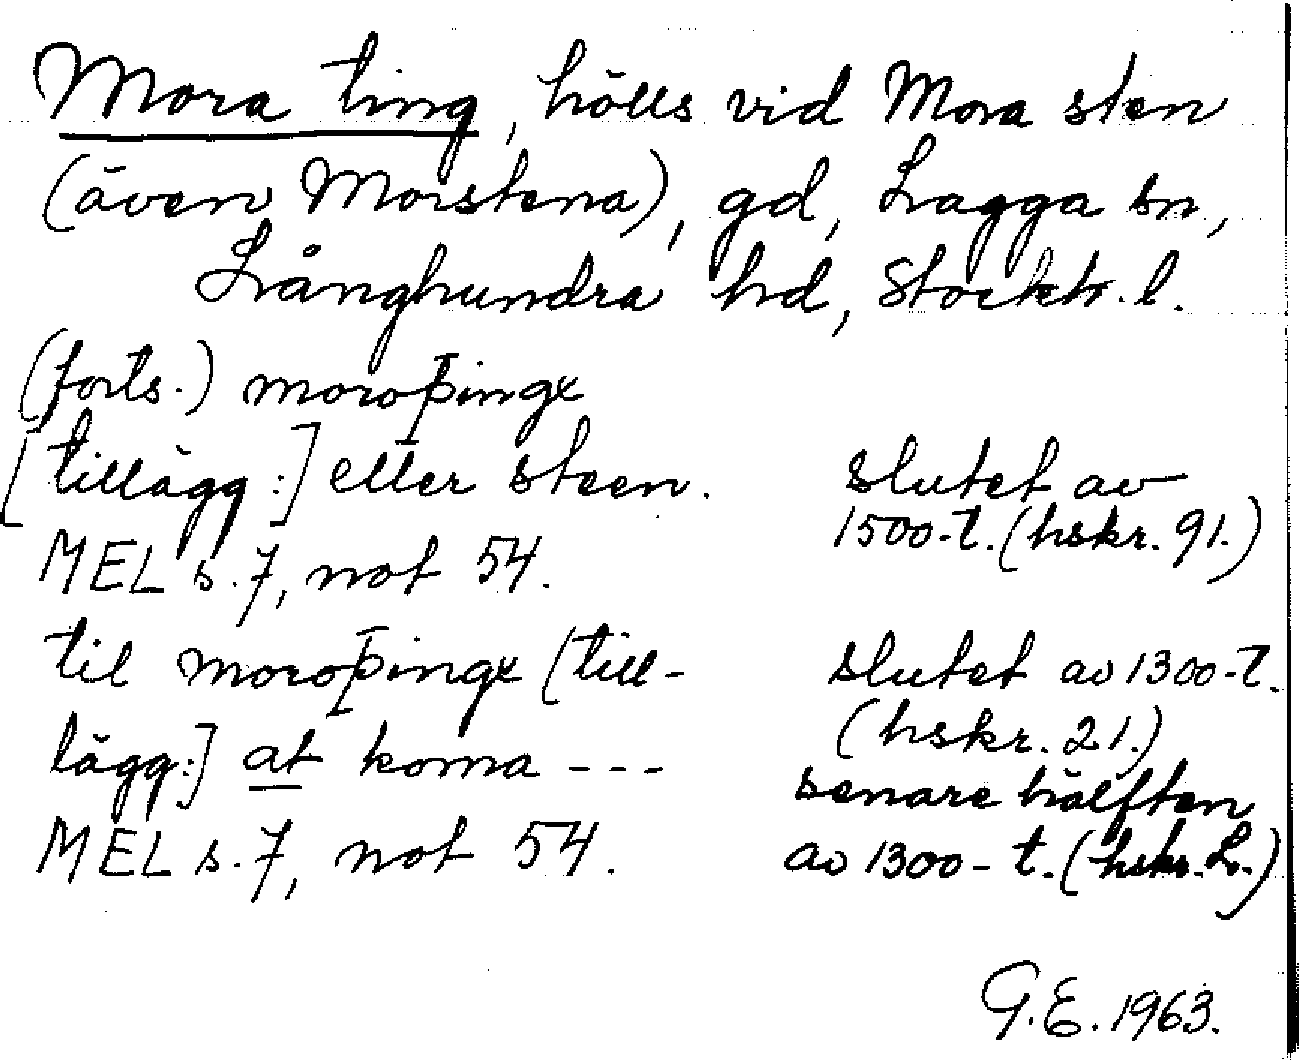 Mora ting, hölls vid Mora sten
(även Morstena), gd, Lagga sn,
Långhundra hd, Stockh. l.
(forts.) moroþingx
[tillägg:] eller steen.
slutet av
1500-t. (hskr. 91.)
MEL s. 7, not 54.
til moroþingx (till-
lägg:] at koma ---
slutet av 1300-t.
(hskr. 21.)
senare hälften
av 1300-t. (hskr. L.)
MEL s. 7, not 54.
G.E. 1963.